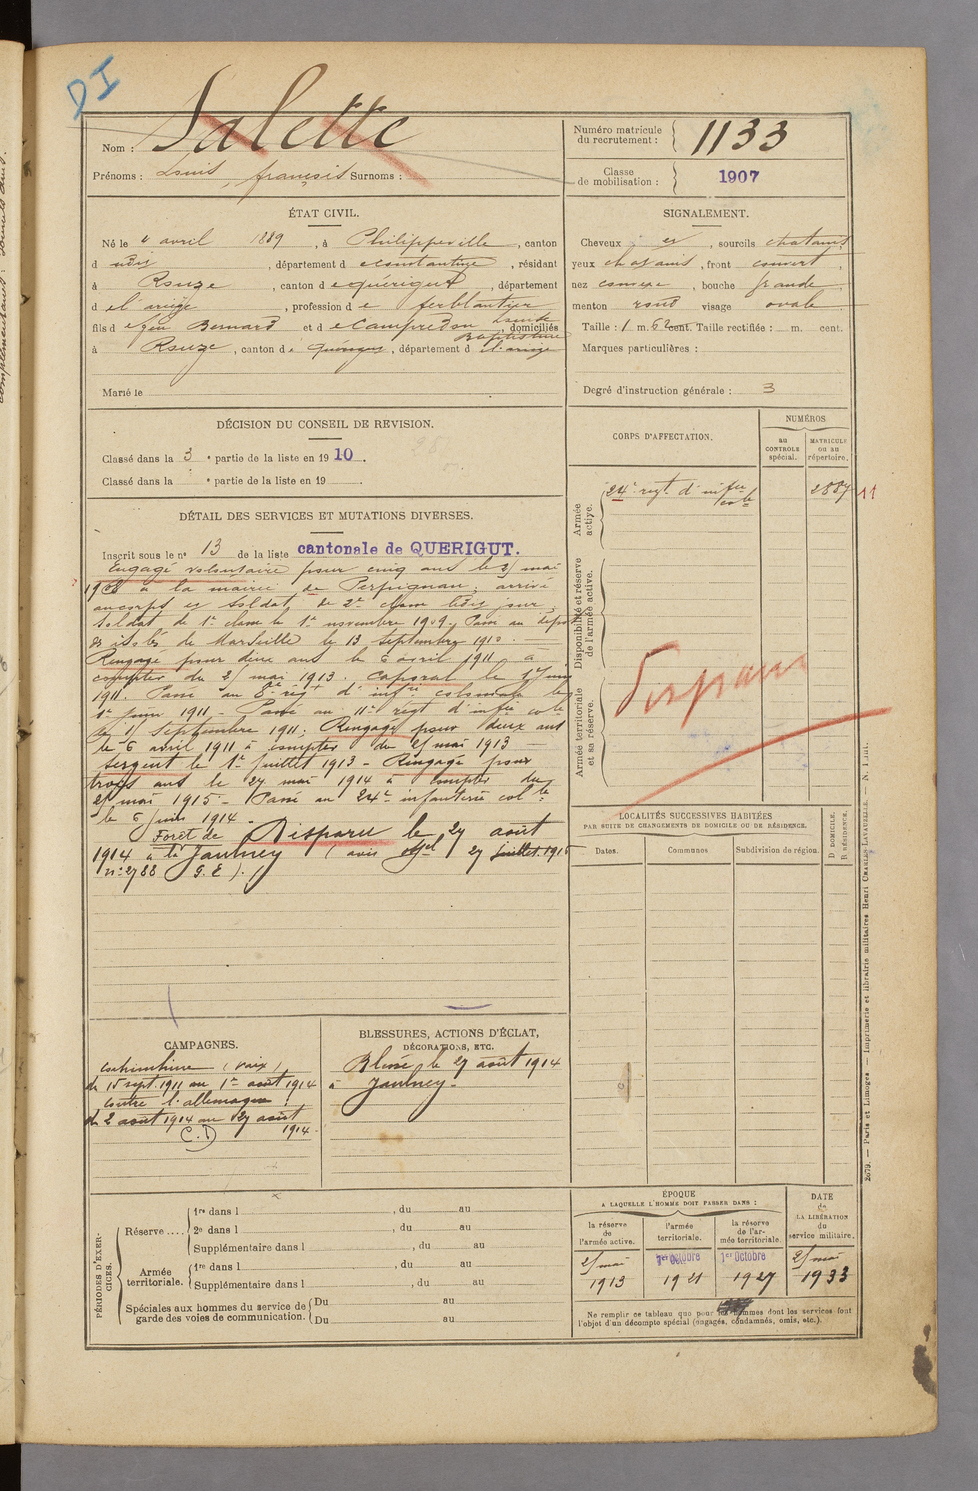 DI
Nom : Salette
Prénoms : Louis, françois Surnoms :
Numéro matricule du recrutement : 1133
Classe de mobilisation : 1907
ÉTAT CIVIL.
Né le 4 avril 1889, à Philippeville, canton
d udis, département de constantine, résidant
à Rouze, canton de quérigut, département
de l'ariège, profession de ferblantier
fils de feu Bernard et de Campredon Baptistine, domiciliés
à Rouze, canton de quérigut, département de l'ariège
Marié le
SIGNALEMENT.
Cheveux et, sourcils chatains
yeux chatains, front couvert,
nez convexe, bouche grande,
menton rond visage ovale
Taille : 1 m. 62 cent. Taille rectifiée : m. cent.
Marques particulières :
Degré d'instruction générale : 3
DÉCISION DU CONSEIL DE REVISION.
Classé dans la 3e partie de la liste en 1910.
Classé dans la e partie de la liste en 19
CORPS D'AFFECTATION.
NUMÉROS
au CONTROLE spécial.
MATRICULE ou au répertoire.
Armée active.
24e regt d'infie cole 2887 11
Disponibilité et réserve de l'armée active.
Armée territoriale et sa réserve.
Disparu
DÉTAIL DES SERVICES ET MUTATIONS DIVERSES.
Inscrit sous le no 13 de la liste cantonale de QUERIGUT.
Engagé volontaire pour cinq ans le 25 mai
1908 à la mairie de Perpignan, arrivé
au corps et soldat de 2e classe ledit jour,
Soldat de 1e classe le 1er novembre 1909, Passé au dépot
des isolés de Marseille le 13 septembre 1910.
Rengagé pour deux ans le 6 avril 1911 à
compter du 25 mai 1913. Caporal le 1er juin
1911. Passé au 8e régt d'infie coloniale le
1er juin 1911 - Passé au 11e régt d'infie cole
le 15 Septembre 1911; Rengagé pour deux ans
le 6 avril 1911 à compter du 25 mai 1913
Sergent le 1er juillet 1913 - Rengagé pour
trois ans le 27 mai 1914 à compter du
25 mai 1915 - Passé au 24e infanterie cole
le 6 juin 1914.
Disparu le 27 août
1914 à la Forêt de Jaulney (avis offel 27 juillet 1915
no 2788 G.E).
LOCALITÉS SUCCESSIVES HABITÉES
PAR SUITE DE CHANGEMENTS DE DOMICILE OU DE RÉSIDENCE.
Dates. Communes. Subdivision de région. D DOMICILE. R RÉSIDENCE.
CAMPAGNES.
Cochinchine (paix)
du 15 sept. 1911 au 1er août 1914
contre l'allemagne :
du 2 août 1914 au 27 août
1914.
C.D
BLESSURES, ACTIONS D'ÉCLAT,
DÉCORATIONS, ETC.
Blessé le 27 août 1914
à Jaulney -
PÉRIODES D'EXERCICES.
Réserve .... 1re dans l , du au
2e dans l , du au
Supplémentaire dans l , du au
Armée territoriale. 1re dans l , du au
Supplémentaire dans l , du au
Spéciales aux hommes du service de garde des voies de communication. Du au
Du au
ÉPOQUE
A LAQUELLE L'HOMME DOIT PASSER DANS :
la réserve de l'armée active.
l'armée territoriale.
la réserve de l'armée territoriale.
DATE de LA LIBÉRATION du service militaire.
25 mai 1913
1er Octobre 1921
1er Octobre 1927
25 mai 1933
Ne remplir ce tableau que pour les hommes dont les services font
l'objet d'un décompte spécial (engagés, condamnés, omis, etc.).